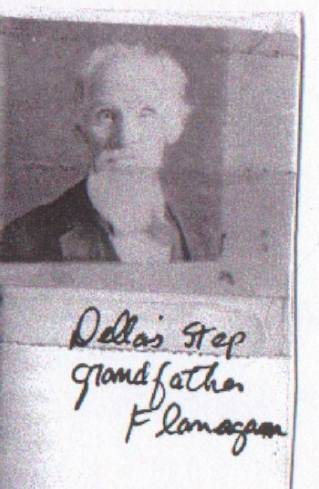 Della's Step
grandfather
Flanagan